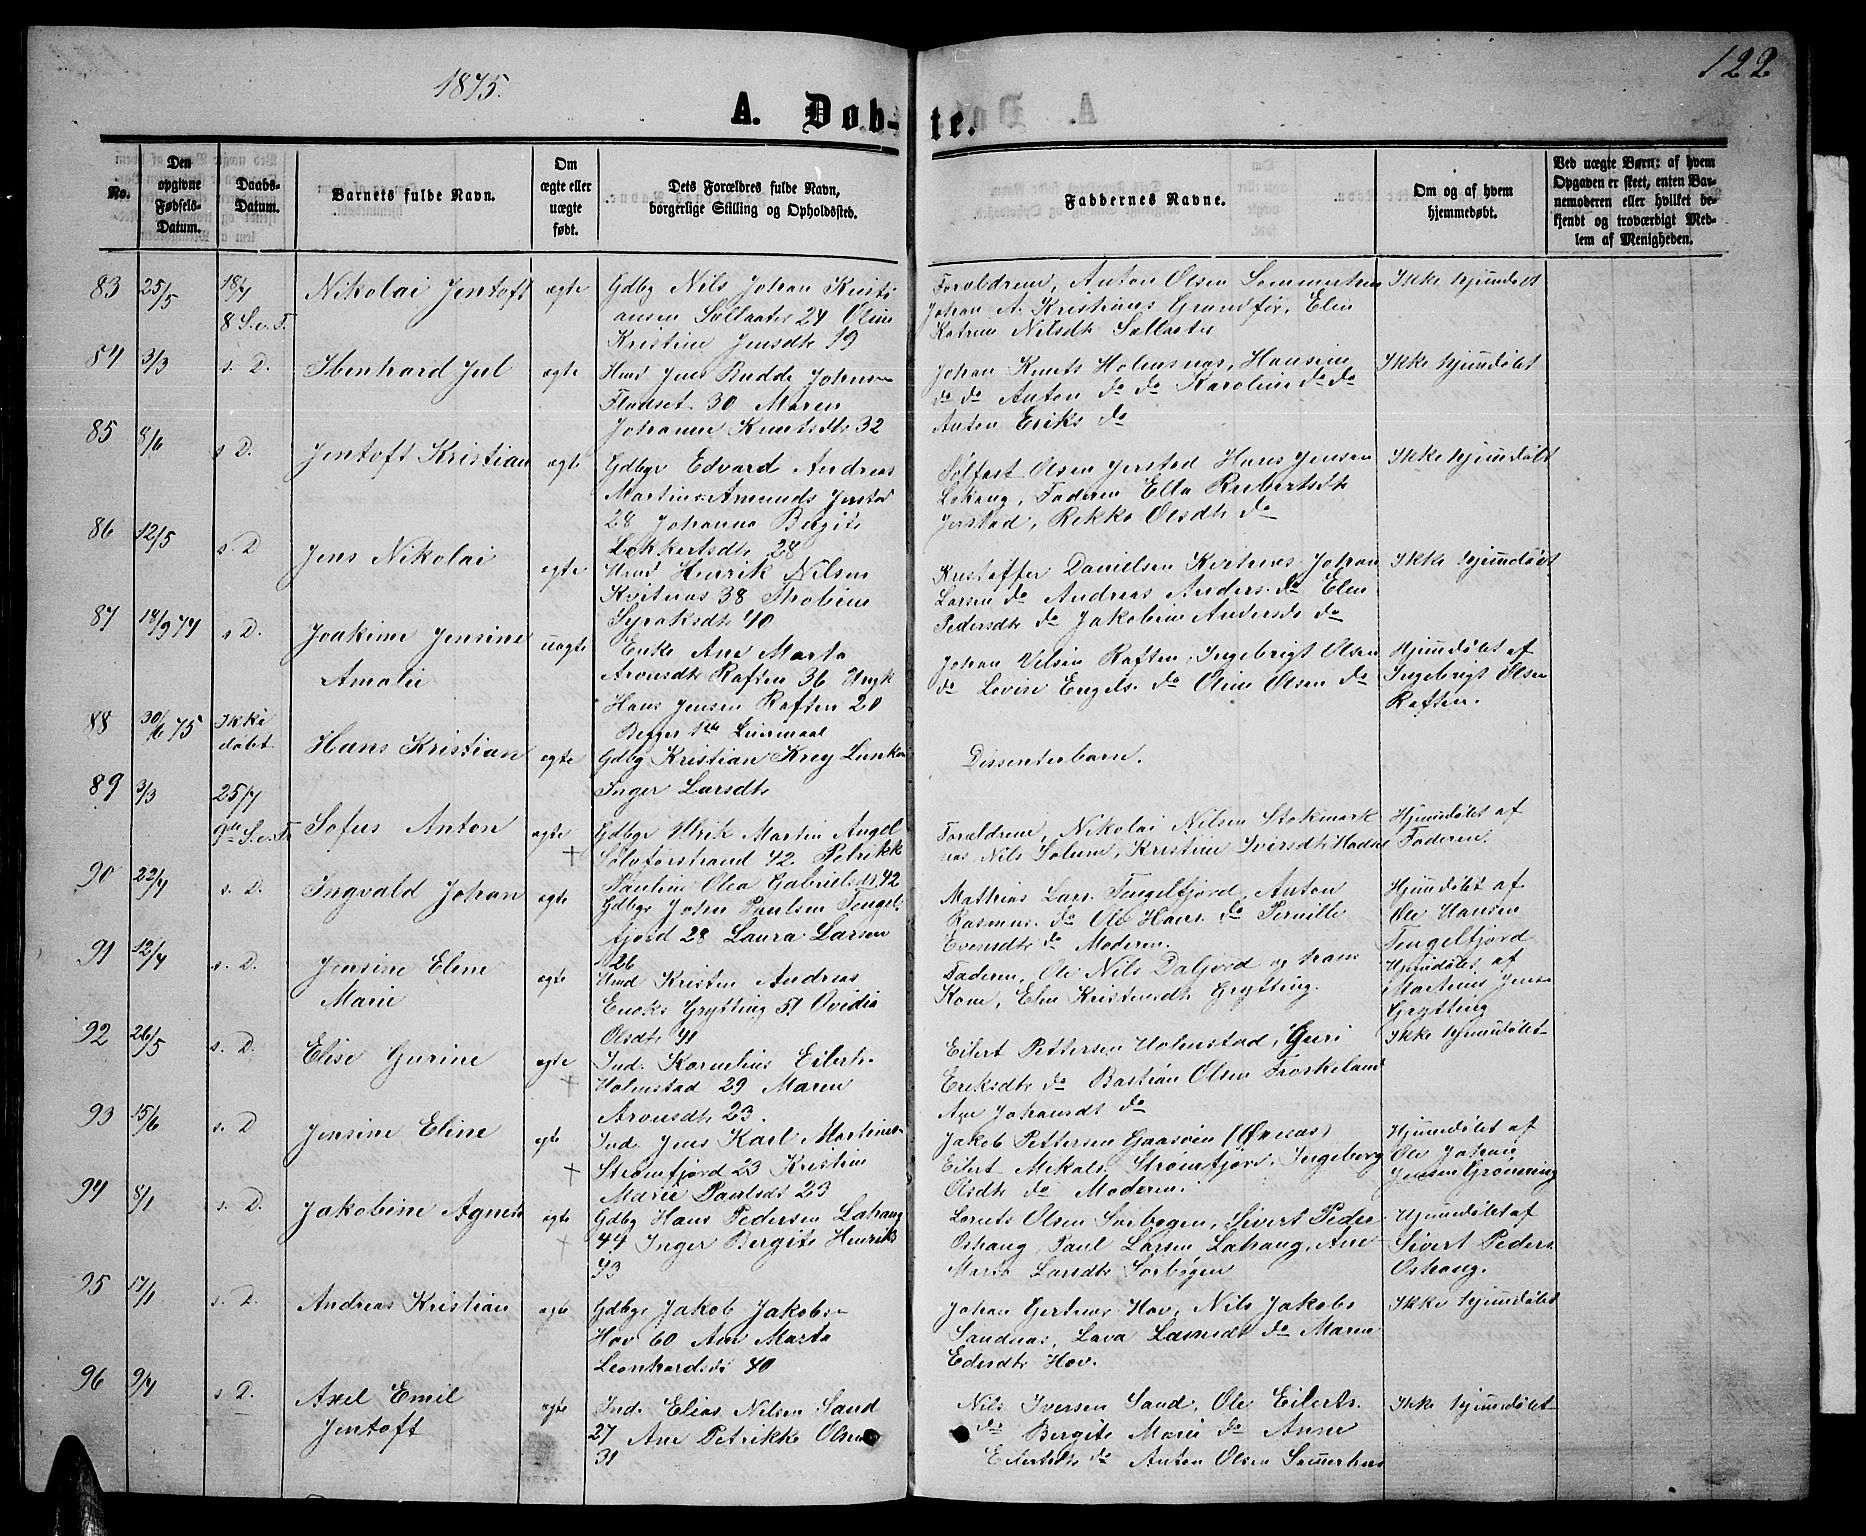 1875.
122
A. Døb-te.
No.
Den opgivne Fødsels-Datum.
Daabs-Datum.
Barnets fulde Navn.
Om ægte eller uægte født.
Dets Forældres fulde Navn, borgerlige Stilling og Opholdssted.
Faddernes Navne.
Om og af hvem hjemmedøbt.
Ved uægte Børn: af hvem Opgaven er skeet, enten Barnemoderen eller hvilket bekjendt og troværdigt Medlem af Menigheden.
83 25/5 18/7 Nikolai Jentoft ægte Gdbg Nils Johan Knits Forældrene, Anton Olsen Sommerhus Ikke hjemdøbt
8 S. e. T. ansen Sellaater 24 Oline Johan A. Kristians Grundfør, Elen
Kristine Jensdtr 19 Katrine Nilsdtr Sellaater
84 3/3 s. D. Ibenhard Jul ægte Hmd Jens Budde Johns Johan Knuts Holmsnæs, Hansine Ikke hjemdøbt
Fladset 30 Maren do do Anton do do Karoline do do
Johanne Knutsdtr 32 Anton Eriks do
85 8/6 s. D. Jentoft Kristian ægte Gdbgr Edvard Andreas Sølfest Olsen Jerstad Hans Jensen Ikke hjemdøbt
Martinus Amunds Jerstad Lahaug, Faderen Ella Rubertsdtr
28 Johanna Bergite Jerstad, Rikka Olsdtr do
Lokkertsdtr 28
86 12/5 s. D Jens Nikolai ægte Hmd Henrik Nilsen Kristoffer Danielsen Kvitnæs, Johan Ikke hjemdøbt
Kvitnæs 38 Larsen do Andreas Anders. do Elen
Syvaksdtr 40 Pedersdtr do Jakobine Andersdr do
87 18/9 74 s. D. Joakime Jensine uægte Enke Ane Marta Johan Nilsen Raften, Ingebrigt Olsen Hjemdøbt af
Amalie Aronsdtr Raften 36 Ungk do Lovise Engels. do Oline Olsen do Ingebrigt Olsen
Hans Jensen Raften 20 Raften.
Begges 1ste Leiermaal
88 30/6 75 Ikke døbt Hans Kristian ægte Gdbg Kristian Krey Lunkan Dissenterbarn.
Inger Larsdtr
89 3/3 25/7 Sofus Anton ægte Gdbgr Ulrik Martin Angel Forældrene, Nikolai Nilsen Stokmark Hjemdøbt af
9de S. e. Tr + Sølvførstrand 42 Petrikk næs Nils Solum, Kristine Iversdtr Hadsel Faderen.
Pauline Olea Gabrielsdr 42
90 22/4 s. D. Ingvald Johan ægte Gdbgr John Paulsen Tengel Mathias Lars. Tengelfjord, Anton Hjemdøbt af
fjord 28 Laura Larsen Rasmus. do Ole Hans. do Pernille Ole Hansen
26 Evensdtr do Moderen. Tengelfjord
91 12/4 s. D. Jensine Eline ægte Hmd Kristen Andreas Faderen, Ole Nils Daljord og hans Hjemdøbt af
Marie Enoks Grytting 51 Ovidia Kone, Elen Kristensdtr Grytting. Martinus Jens
Olsdtr 41 Grytting
92 26/5 s. D. Elise Gurine ægte Ind. Kornelius Eilerts Eilert Pettersen Holmstad, Guri Ikke hjemdøbt
+ Holmstad 29 Maren Eriksdtr do Bastian Olsen Froskeland
Aronsdtr 23. Ane Johansdt do
93 15/6 s. D Jensine Eline ægte Ind. Jens Karl Martinus Jakob Pettersen Gaasøen (Øksnæs) Hjemdøbt af
+ Strømfjord 23 Kristine Eilert Mekals. Strømfjord, Ingeborg Ole Johan
Marie Paulsdt 23 Olsdtr do Moderen. Jensen Grønning
94 8/1 s. D. Jakobine Agnes ægte Gdbg Hans Pedersen Lahaug Lorents Olsen Sørbøgen, Sivert Peder Hjemdøbt af
+ 44 Inger Bergite Henriks Oshaug, Paul Larsen Lahaug, Ane Sivert Peders
43 Marta Larsdtr Sørbøgen Oshaug.
95 17/1 s. D. Andreas Kristian ægte Gdbgr Jakob Jakobs Johan Gertner Hov, Nils Jakobs Ikke hjemdøbt
Hov 60 Ane Marta Sandnæs, Lava do Maren
Leonhardsdr 40 Edisdtr Hov.
96 9/4 s. D. Axel Emil ægte Ind. Elias Nilsen Sand Nils Iversen Sand, Ole Eilerts. Ikke hjemdøbt
Jentoft 27 Ane Petrikke Olsen do Bergite Marie do Anne
31 Eilertsdtr do Anton Olsen Sommerhus